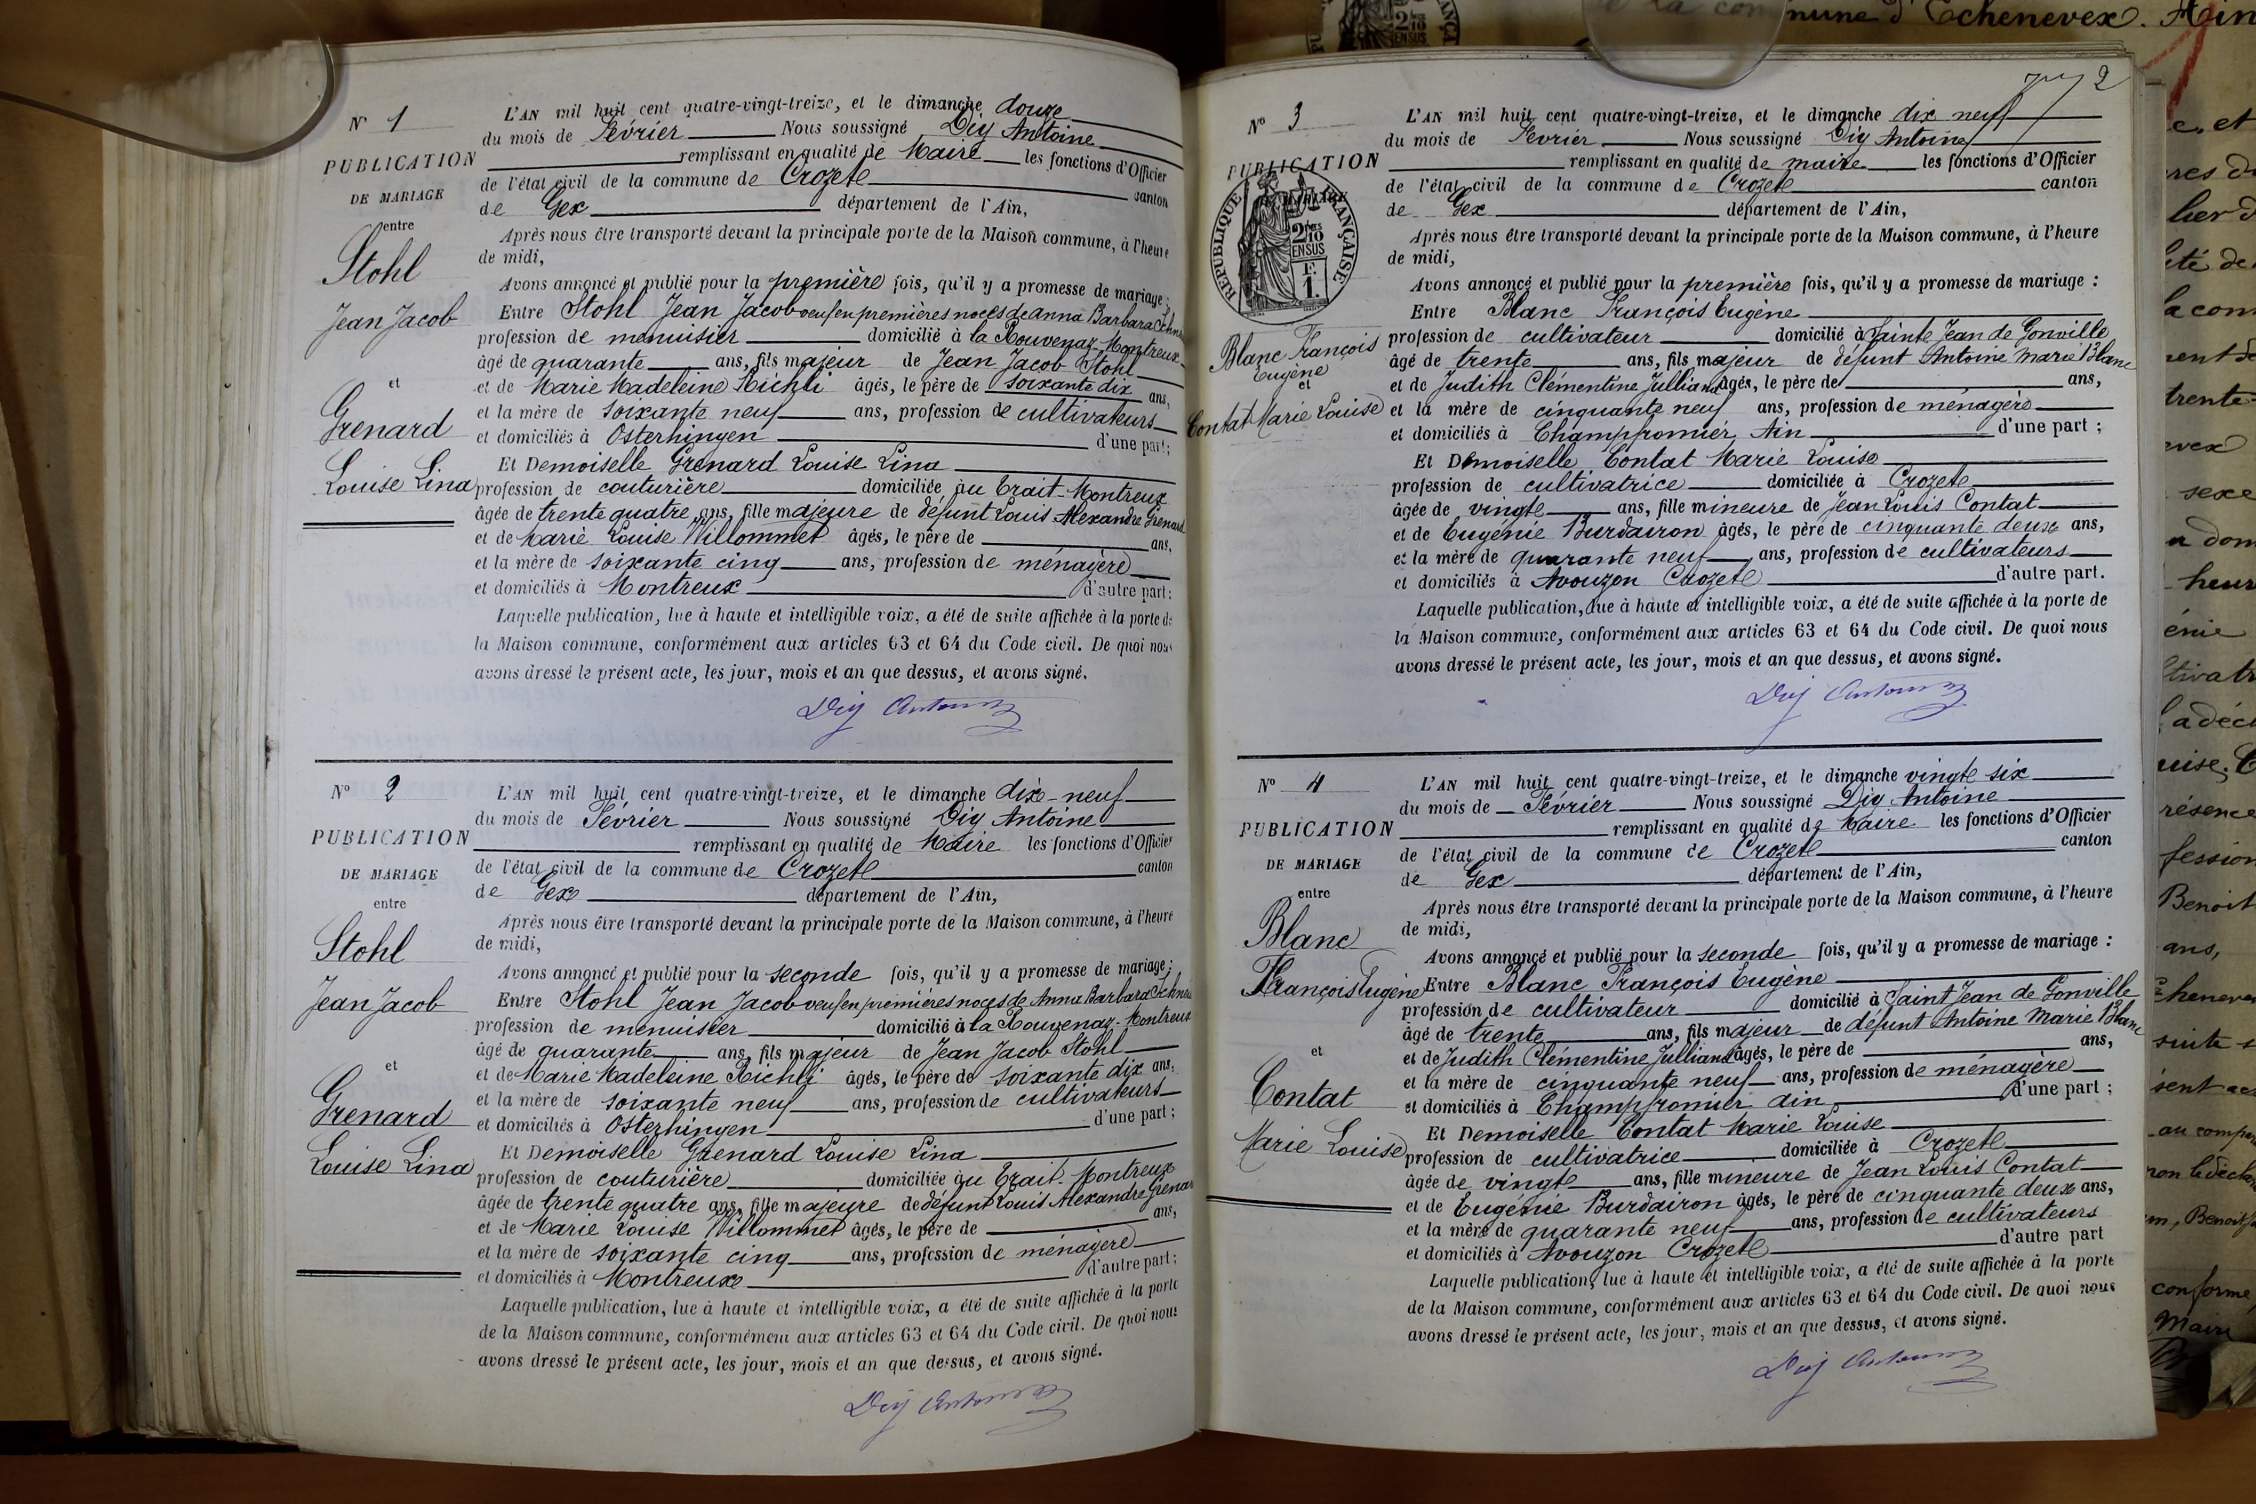 N° 1
PUBLICATION
DE MARIAGE
entre
Stohl
Jean Jacob
et
Grenard
Louise Lina
L'AN mil huit cent quatre-vingt-treize, et le dimanche douze
du mois de Février Nous soussigné Dig Antoine
remplissant en qualité de Maire les fonctions d'Officier
de l'état civil de la commune de Crozet canton
de Gex département de l'Ain,
Après nous être transporté devant la principale porte de la Maison commune, à l'heure
de midi,
Avons annoncé et publié pour la première fois, qu'il y a promesse de mariage :
Entre Stohl Jean Jacob veuf en premières noces de Anna Barbara
profession de menuisier domicilié à la Rouvenaz-Montreux
âgé de quarante ans, fils majeur de Jean Jacob Stohl
et de Marie Madeleine Richli âgés, le père de soixante dix ans,
et la mère de soixante neuf ans, profession de cultivateurs
et domiciliés à Osterhingen d'une part ;
Et Demoiselle Grenard Louise Lina
profession de couturière domiciliée au Trait-Montreux
âgée de trente quatre ans, fille majeure de défunt Louis Alexandre Grenard
et de Marie Louise Willommet âgés, le père de ans,
et la mère de soixante cinq ans, profession de ménagère
et domiciliés à Montreux d'autre part ;
Laquelle publication, lue à haute et intelligible voix, a été de suite affichée à la porte de
la Maison commune, conformément aux articles 63 et 64 du Code civil. De quoi nous
avons dressé le présent acte, les jour, mois et an que dessus, et avons signé.
Dig Antoine
N° 2
PUBLICATION
DE MARIAGE
entre
Stohl
Jean Jacob
et
Grenard
Louise Lina
L'AN mil huit cent quatre-vingt-treize, et le dimanche dix-neuf
du mois de Février Nous soussigné Dig Antoine
remplissant en qualité de Maire les fonctions d'Officier
de l'état civil de la commune de Crozet canton
de Gex département de l'Ain,
Après nous être transporté devant la principale porte de la Maison commune, à l'heure
de midi,
Avons annoncé et publié pour la seconde fois, qu'il y a promesse de mariage :
Entre Stohl Jean Jacob veuf en premières noces de Anna Barbara
profession de menuisier domicilié à la Rouvenaz-Montreux
âgé de quarante ans, fils majeur de Jean Jacob Stohl
et de Marie Madeleine Richli âgés, le père de soixante dix ans,
et la mère de soixante neuf ans, profession de cultivateurs
et domiciliés à Osterhingen d'une part ;
Et Demoiselle Grenard Louise Lina
profession de couturière domiciliée au Trait-Montreux
âgée de trente quatre ans, fille majeure de défunt Louis Alexandre Grenar
et de Marie Louise Willommet âgés, le père de ans,
et la mère de soixante cinq ans, profession de ménagère
et domiciliés à Montreux d'autre part ;
Laquelle publication, lue à haute et intelligible voix, a été de suite affichée à la porte
de la Maison commune, conformément aux articles 63 et 64 du Code civil. De quoi nous
avons dressé le présent acte, les jour, mois et an que dessus, et avons signé.
Dig Antoine
2
N° 3
PUBLICATION
RÉPUBLIQUE FRANÇAISE
2/10
EN SUS
F.
1.
Blanc François
Eugène
et
Contat Marie Louise
L'AN mil huit cent quatre-vingt-treize, et le dimanche dix neuf
du mois de Février Nous soussigné Dig Antoine
remplissant en qualité de maire les fonctions d'Officier
de l'état civil de la commune de Crozet canton
de Gex département de l'Ain,
Après nous être transporté devant la principale porte de la Maison commune, à l'heure
de midi,
Avons annoncé et publié pour la première fois, qu'il y a promesse de mariage :
Entre Blanc François Eugène
profession de cultivateur domicilié à Sainte Jean de Gonville
âgé de trente ans, fils majeur de défunt Antoine Marie Blanc
et de Judith Clémentine Julliand âgés, le père de ans,
et la mère de cinquante neuf ans, profession de ménagère
et domiciliés à Champfromier Ain d'une part ;
Et Demoiselle Contat Marie Louise
profession de cultivatrice domiciliée à Crozet
âgée de vingt ans, fille mineure de Jean Louis Contat
et de Eugénie Burdairon âgés, le père de cinquante deux ans,
et la mère de quarante neuf ans, profession de cultivateurs
et domiciliés à Avouzon Crozet d'autre part.
Laquelle publication, lue à haute et intelligible voix, a été de suite affichée à la porte de
la Maison commune, conformément aux articles 63 et 64 du Code civil. De quoi nous
avons dressé le présent acte, les jour, mois et an que dessus, et avons signé.
Dig Antoine
N° 4
PUBLICATION
DE MARIAGE
entre
Blanc
François Eugène
et
Contat
Marie Louise
L'AN mil huit cent quatre-vingt-treize, et le dimanche vingt six
du mois de Février Nous soussigné Dig Antoine
remplissant en qualité de Maire les fonctions d'Officier
de l'état civil de la commune de Crozet canton
de Gex département de l'Ain,
Après nous être transporté devant la principale porte de la Maison commune, à l'heure
de midi,
Avons annoncé et publié pour la seconde fois, qu'il y a promesse de mariage :
Entre Blanc François Eugène
profession de cultivateur domicilié à Saint Jean de Gonville
âgé de trente ans, fils majeur de défunt Antoine Marie Blanc
et de Judith Clémentine Julliand âgés, le père de ans,
et la mère de cinquante neuf ans, profession de ménagère
et domiciliés à Champfromier ain d'une part ;
Et Demoiselle Contat Marie Louise
profession de cultivatrice domiciliée à Crozet
âgée de vingt ans, fille mineure de Jean Louis Contat
et de Eugénie Burdairon âgés, le père de cinquante deux ans,
et la mère de quarante neuf ans, profession de cultivateurs
et domiciliés à Avouzon Crozet d'autre part
Laquelle publication, lue à haute et intelligible voix, a été de suite affichée à la porte
de la Maison commune, conformément aux articles 63 et 64 du Code civil. De quoi nous
avons dressé le présent acte, les jour, mois et an que dessus, et avons signé.
Dig Antoine
de la commune d'Echenevex. Ain